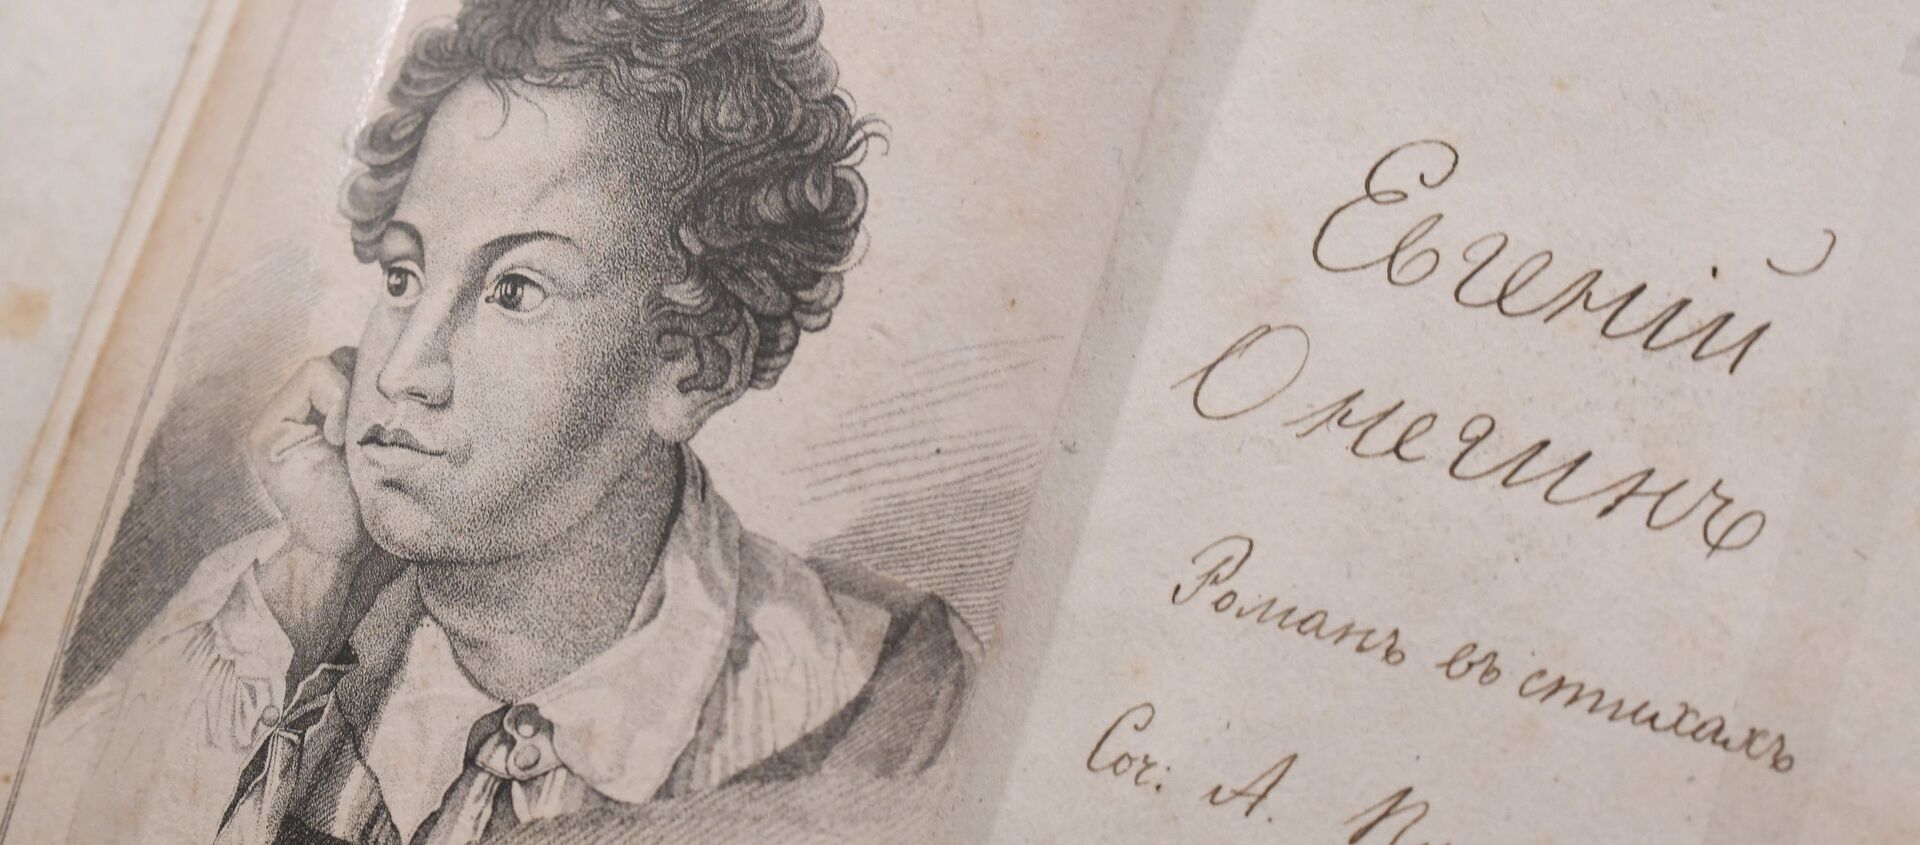 Евгеній
Онегинъ
Романъ въ стихахъ
Соч: А.